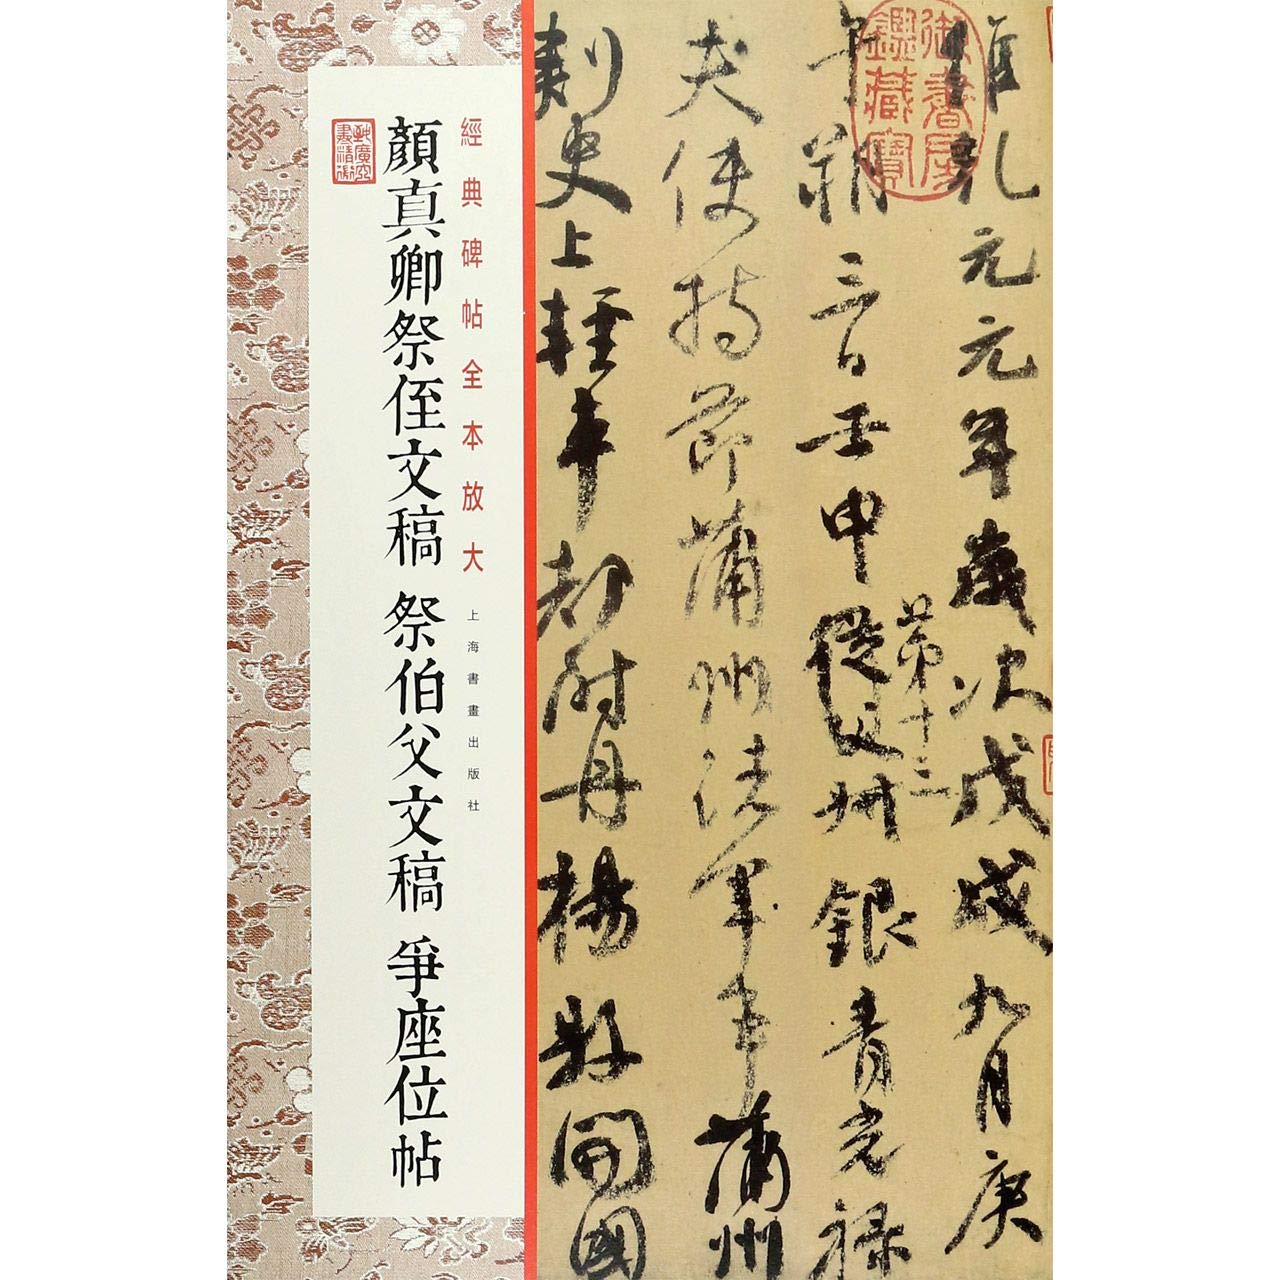 維乾元元年歲次戊戌九月庚
午朔三日壬申第十三從父銀青光祿
夫使持節蒲州諸軍事蒲州
刺史上輕車都尉丹楊縣開國
御書房鑑藏寶
經典碑帖全本放大
上海書畫出版社
顏真卿祭侄文稿 祭伯父文稿 爭座位帖